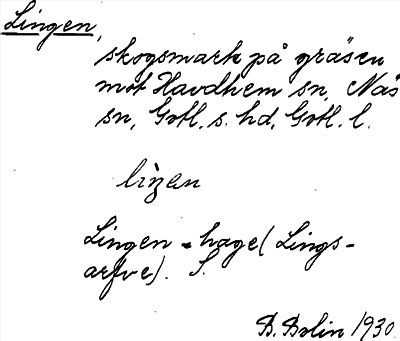 Lingen,
skogsmark på gräsen
mot Havdhem sn, Näs
sn, Gotl. s. hd, Gotl. l.
Lingen - hage (Lings-
arfve). S.
B. Bolin 1930.